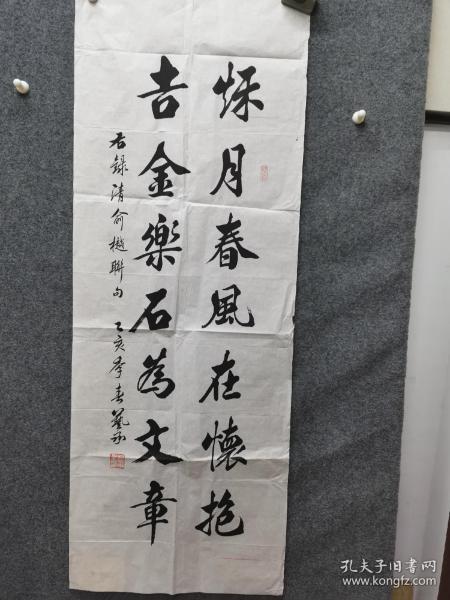 秌月春風在懷抱
吉金樂石為文章
右錄清俞樾聯句 乙亥季春藝承
孔夫子旧书网
www.kongfz.com